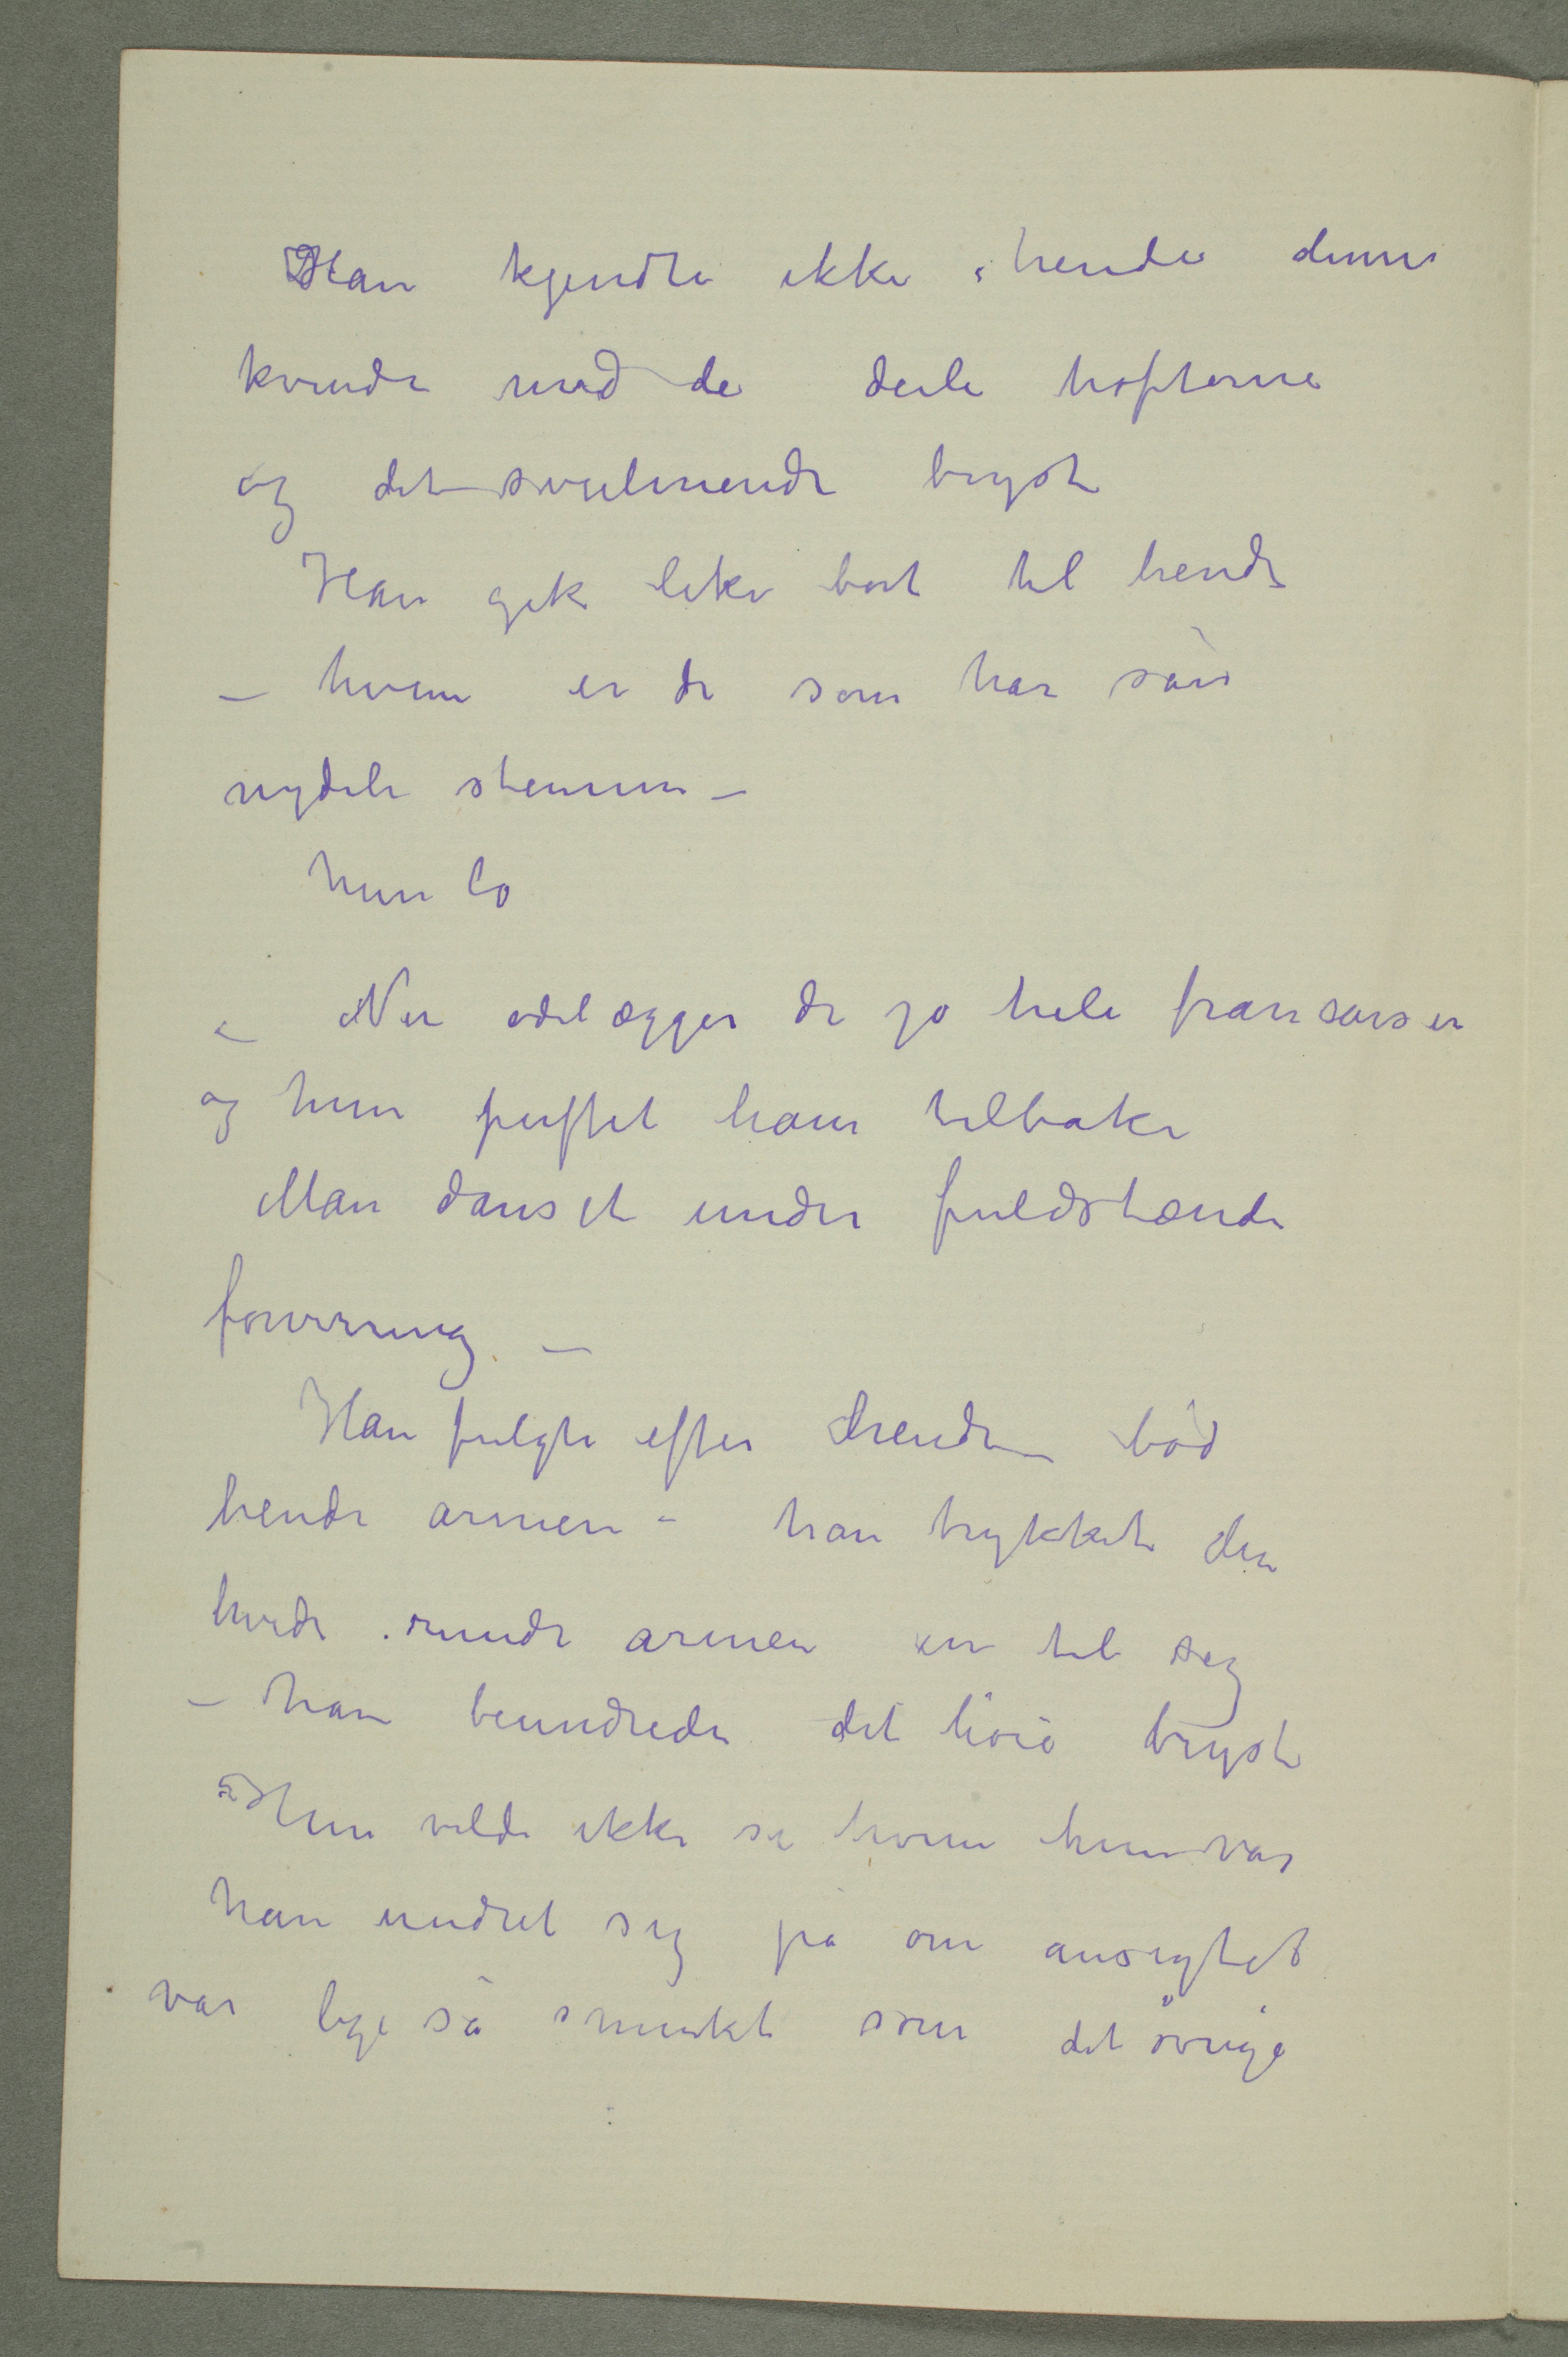 Han kjendte ikke hende denne
kvinde med de deile hofterne
og det svulmende bryst
Han gik like bort til hende
– hvem er De som har sån
nydeli stemme –
hun lo
– Nu ødelægger De jo hele fransæsen
og hun puffet ham tilbake
Man danset under fuldstænde
forvirring –
Han fulgte efter hende – bød
hende armen – han trykket den
hvide runde armen in til seg
– han beundrede det høie bryst
– Hun vilde ikke si hvem hun var
han undret sig på om ansigtet
var lige så smukt som det øvrige